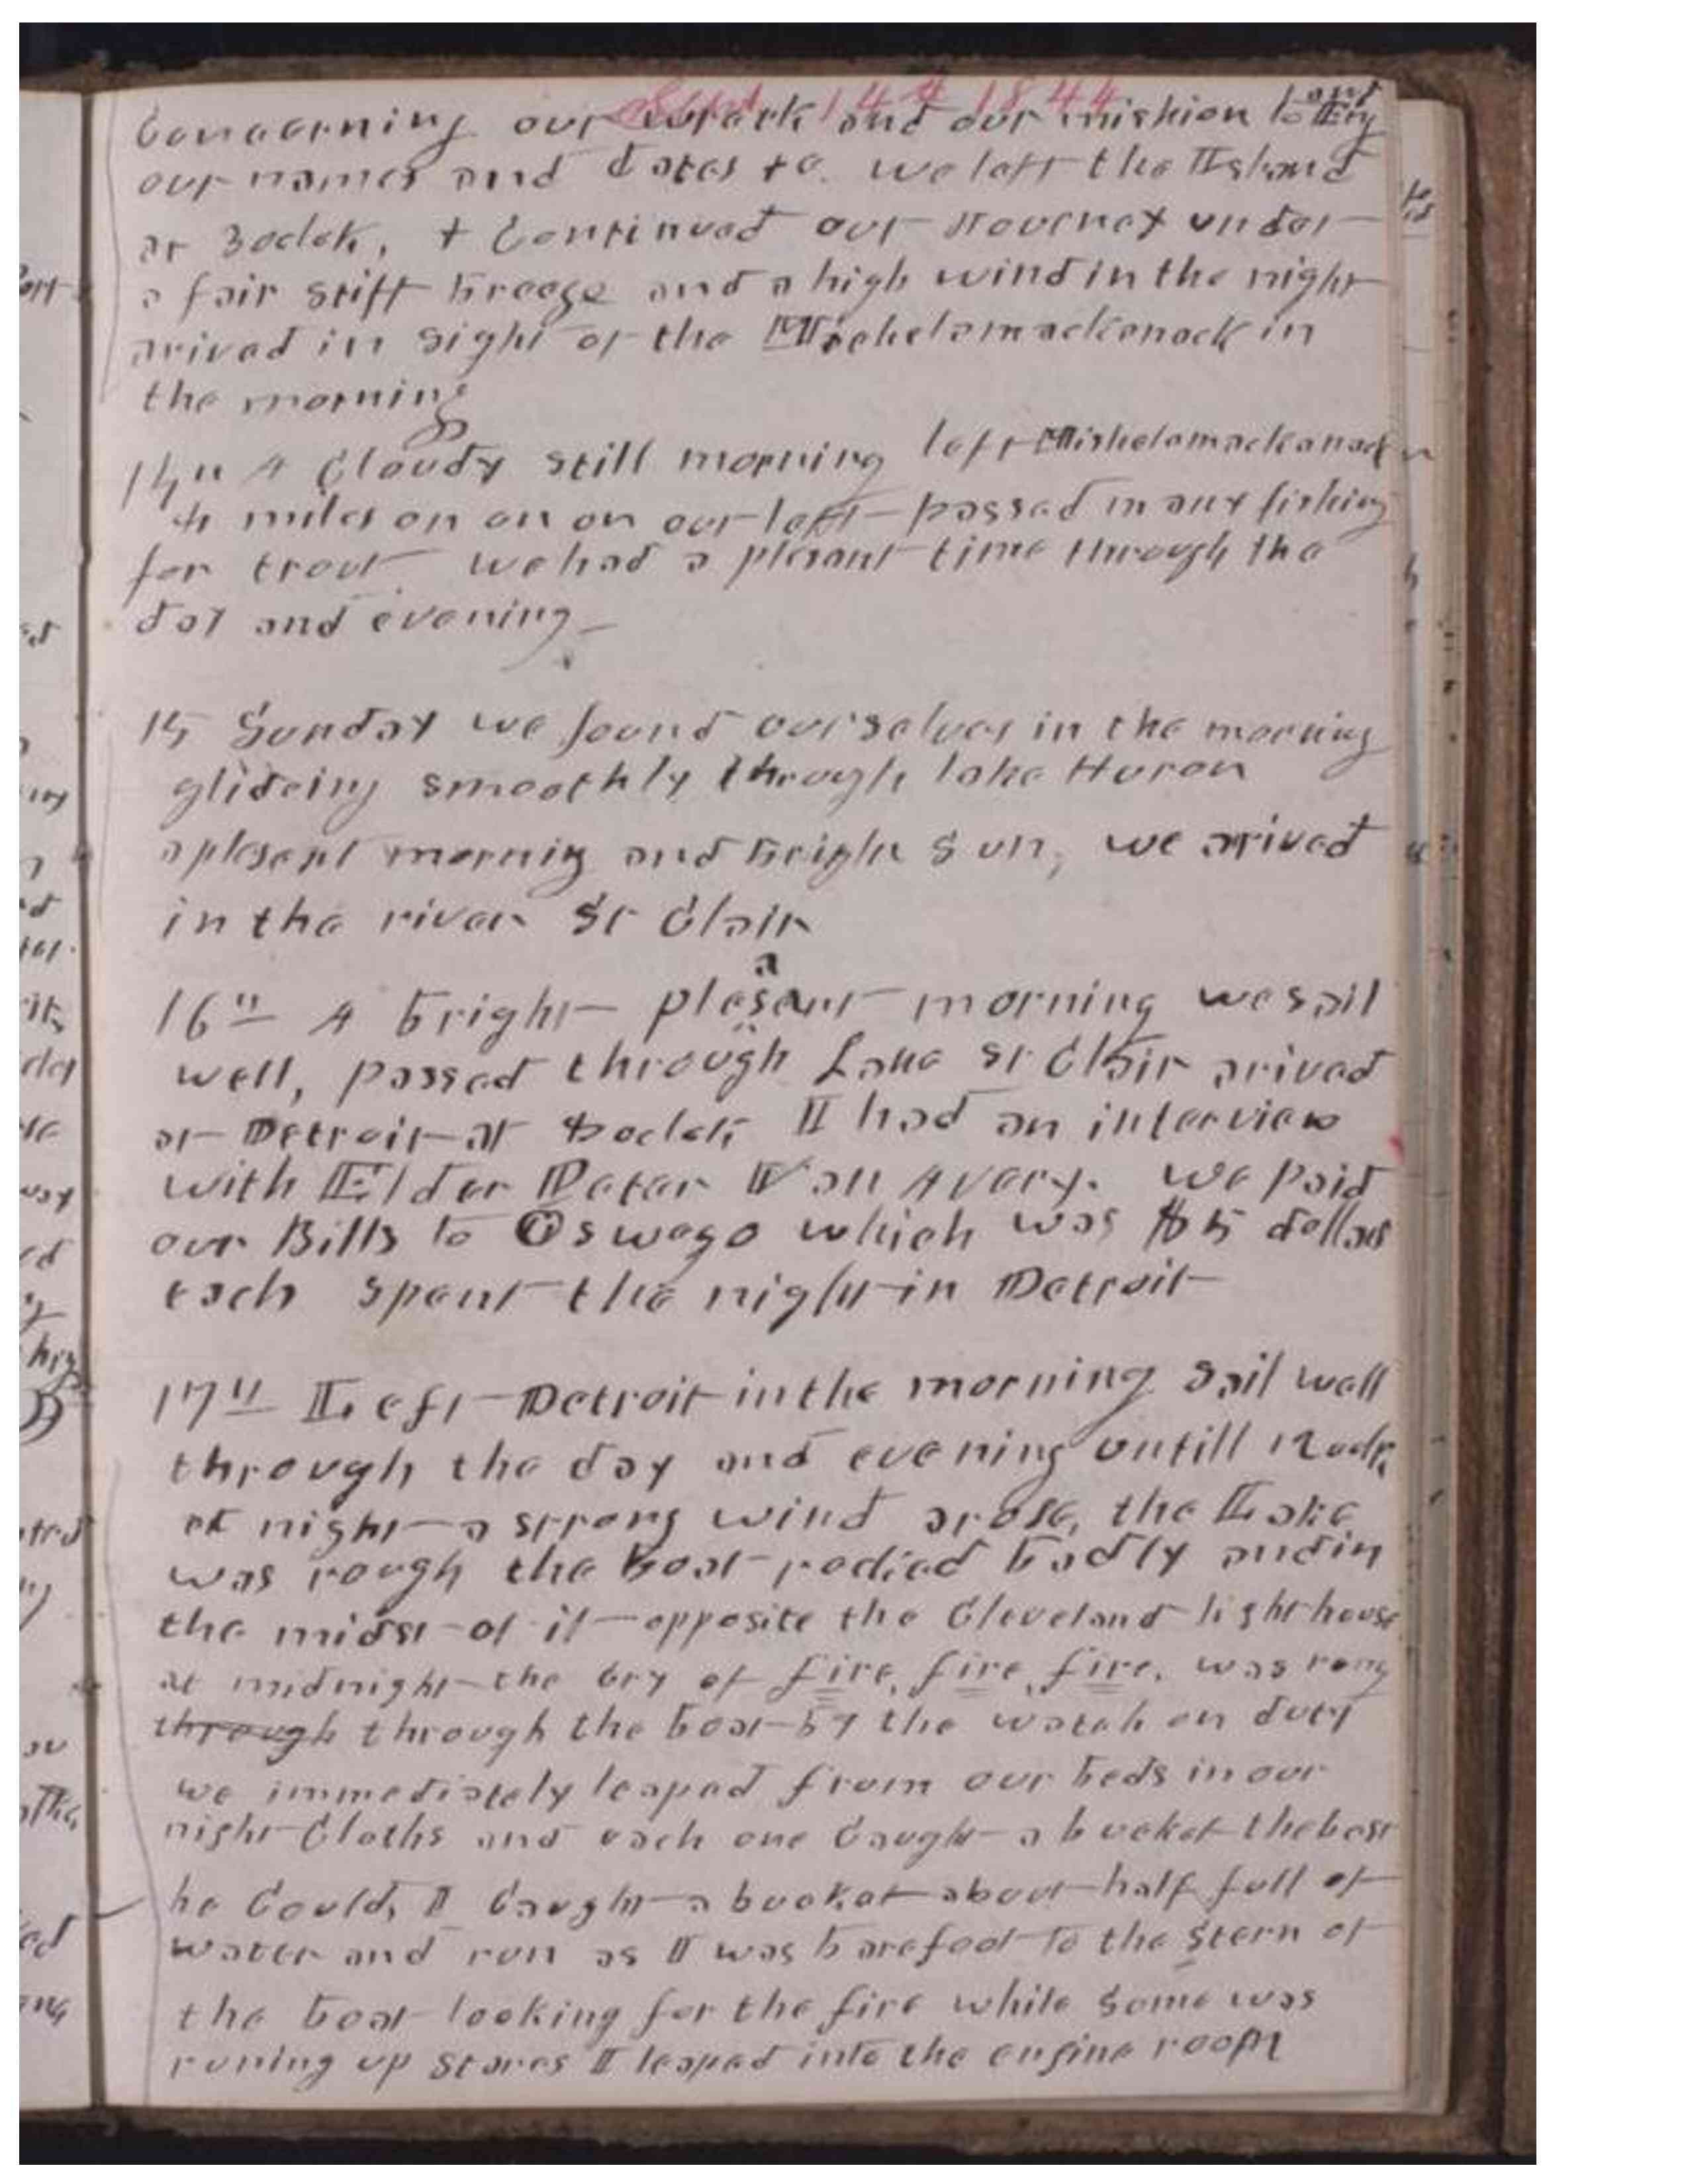 Sept 14th 1844
Concerning our work and our mishion to Eng and
our names and dates &c. we left the Island
at 3oclok, & Continued our Journey under
a fair stiff breeze and a high wind in the night
arived in sight of the Michelamackanack in
the morning
14th A Cloudy still morning left Mishelamackanack
4 miles on on on our left passed many fishing
for trout we had a plesant time through the
day and evening
15 Sunday we found ourselves in the morning
glideing smoothly through lake Huron
a plesent morning and bright Sun, we arived
in the river St Clair
a
16th A bright plesant morning we sail
well, passed through Lake St Clair arived
at Detroit at oclok I had an interview
with Elder Peter Van Avery. we paid
our Bills to Oswego which was $5 dollars
each spent the night in Detroit
17th Left Detroit in the morning sail well
through the day and evening untill 12 oclk
at night a strong wind arose, the Lake
was rough the boat rocked badly and in
the midst of it opposite the Cleveland light house
at midnight the Cry of fire, fire, fire, was rong
through through the boat by the watch on duty
we immediately leaped from our beds in our
night Cloths and each one Caught a bucket the best
he Could, I Caught a bucket about half full of
water and run as I was barefoot to the Stern of
the boat looking for the fire while some was
runing up stares I leaped into the engine room